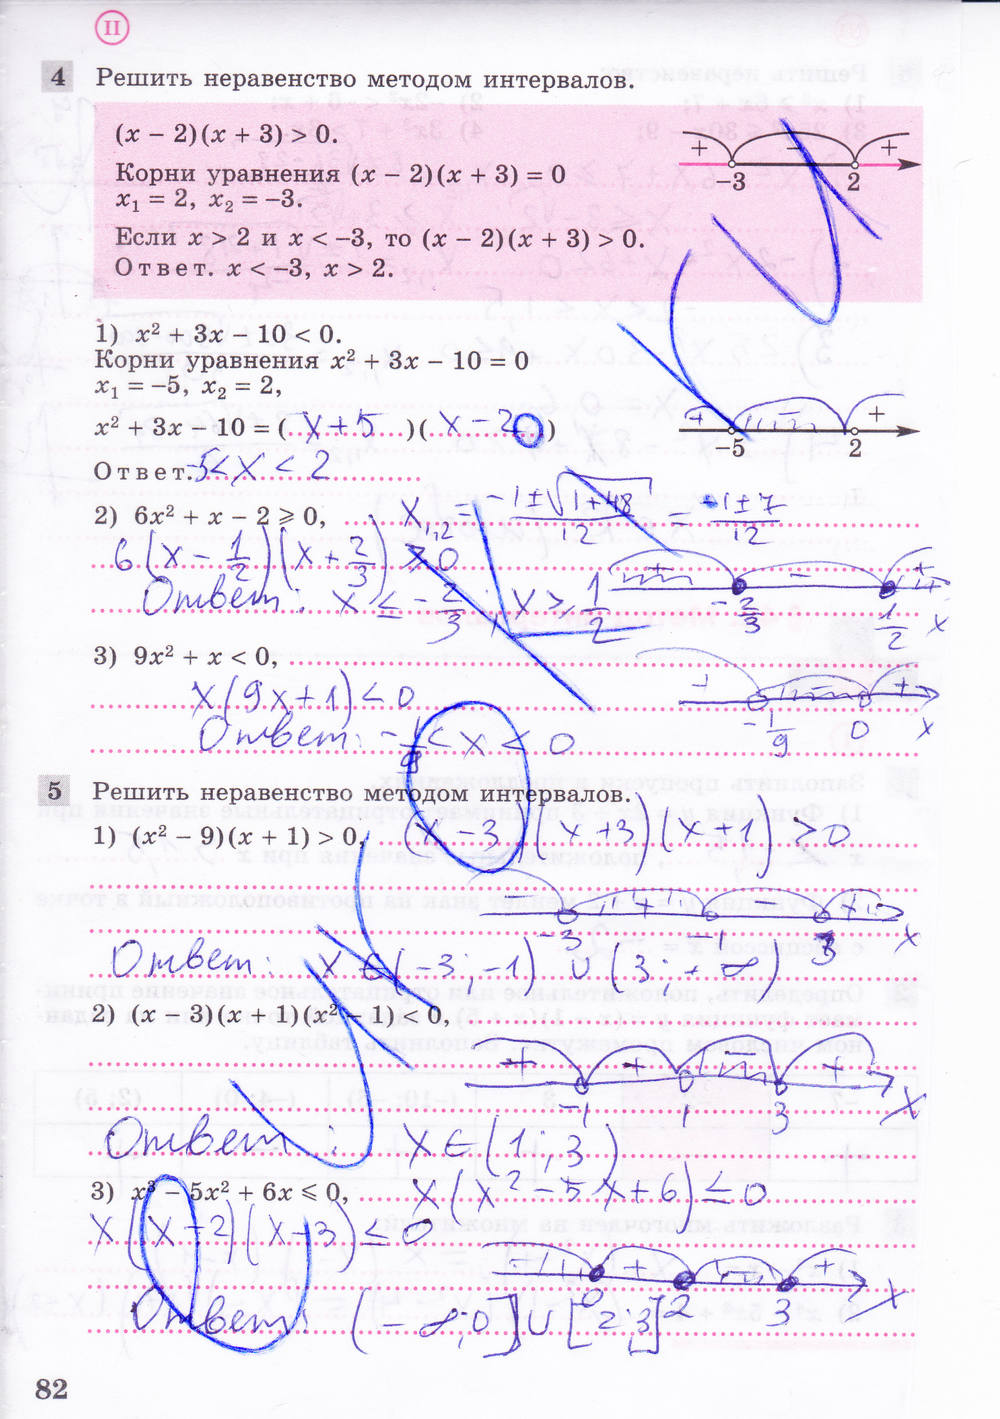 II
4 Решить неравенство методом интервалов.
(x − 2)(x + 3) > 0.
Корни уравнения (x − 2)(x + 3) = 0
x₁ = 2, x₂ = −3.
Если x > 2 и x < −3, то (x − 2)(x + 3) > 0.
Ответ. x < −3, x > 2.
+ − +
−3 2
1) x² + 3x − 10 < 0.
Корни уравнения x² + 3x − 10 = 0
x₁ = −5, x₂ = 2,
x² + 3x − 10 = (x+5)(x−2)
+ − +
−5 2
Ответ. −5<x<2
2) 6x² + x − 2 ⩾ 0, x₁,₂ = (−1±√(1+48))/12 = (−1±7)/12
6(x − 1/2)(x + 2/3) ⩾ 0
+ − +
−2/3 1/2 x
Ответ: x ≤ −2/3; x ⩾ 1/2
3) 9x² + x < 0,
x(9x+1) < 0
+ − +
−1/9 0 x
Ответ: −1/9 < x < 0
5 Решить неравенство методом интервалов.
1) (x² − 9)(x + 1) > 0, (x−3)(x+3)(x+1) > 0
−3 −1 3 x
Ответ: x ∈ (−3; −1) ∪ (3; +∞)
2) (x − 3)(x + 1)(x² − 1) < 0,
+ + − +
−1 1 3 x
Ответ: x ∈ (1; 3)
3) x³ − 5x² + 6x ⩽ 0, x(x² − 5x + 6) ≤ 0
x(x−2)(x−3) ≤ 0
− + − +
0 2 3 x
Ответ: (−∞; 0] ∪ [2; 3]
82